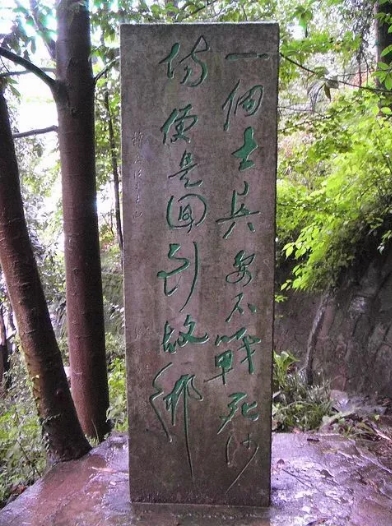 一個士兵要不戰死沙
场便是回到故鄉